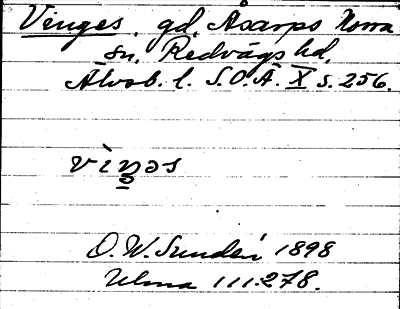 Vinges, gd, Åsarps Norra
sn, Redvägs hd,
Älvsb. l. S.O.Ä. X s. 256.
vìŋəs
O. W. Sundén 1898
Ulma 111:278.